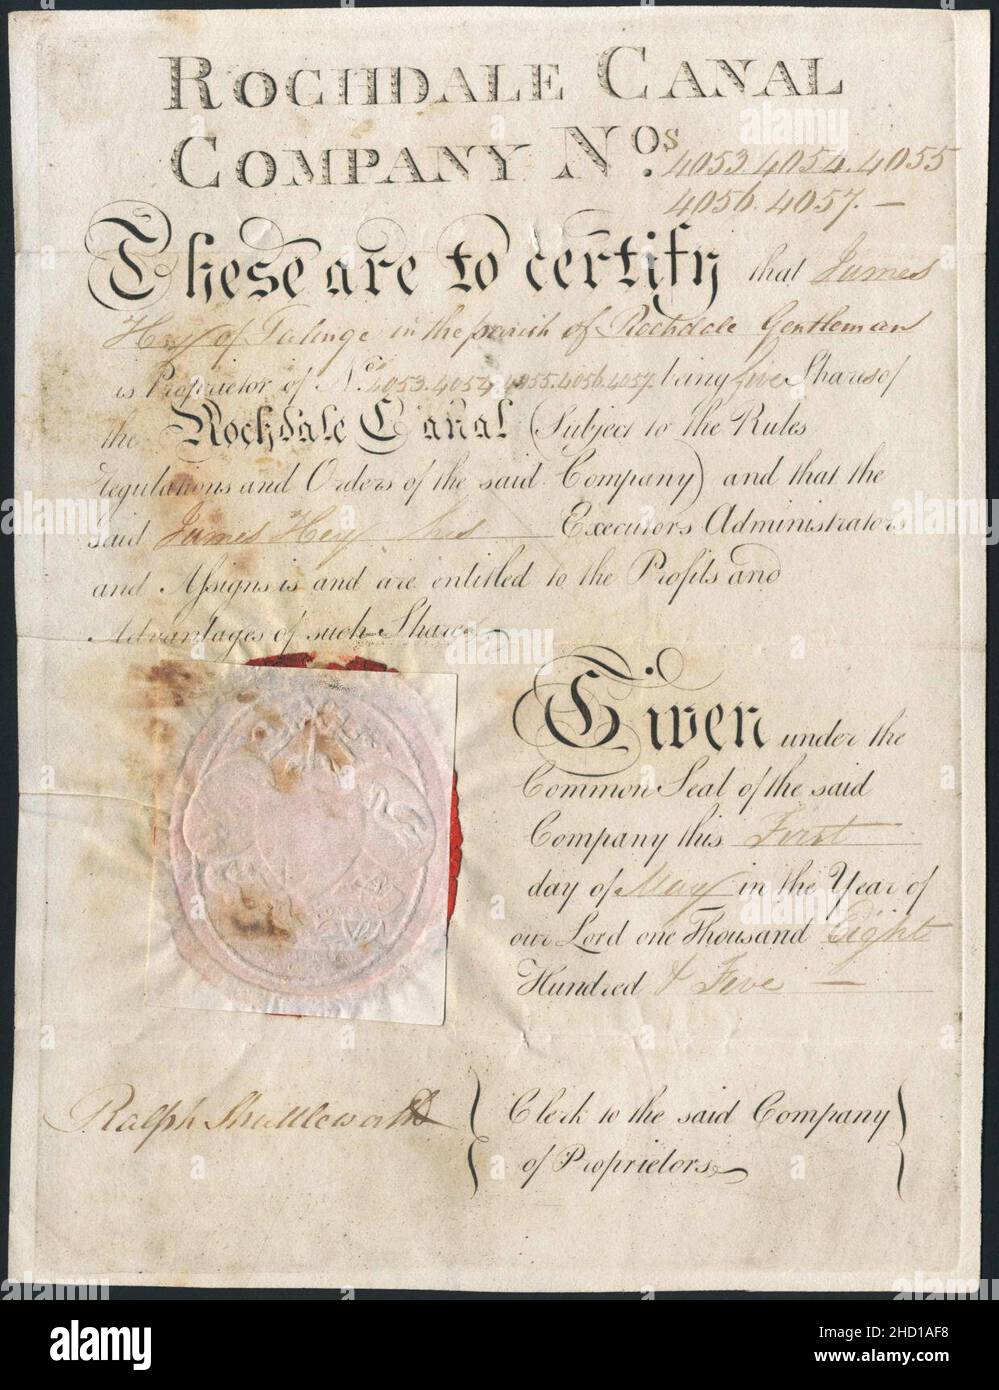 ROCHDALE CANAL
COMPANY Nos. 4053. 4054. 4055
4056. 4057. —
These are to certify that James
Hey of in the parish of Rochdale Gentleman
is Proprietor of Nos 4053. 4054. 4055. 4056. 4057. being five Shares of
the Rochdale Canal (Subject to the Rules
regulations and Orders of the said Company) and that the
said James Hey his Executors Administrators
and Assigns is and are entitled to the Profits and
Advantages of such Shares
Given under the
Common Seal of the said
Company this First
day of May in the Year of
our Lord one Thousand Eight
Hundred & Five —
Ralph Shuttleworth { Clerk to the said Company
of Proprietors }
alamy
Image ID: 2HD1AF8
www.alamy.com